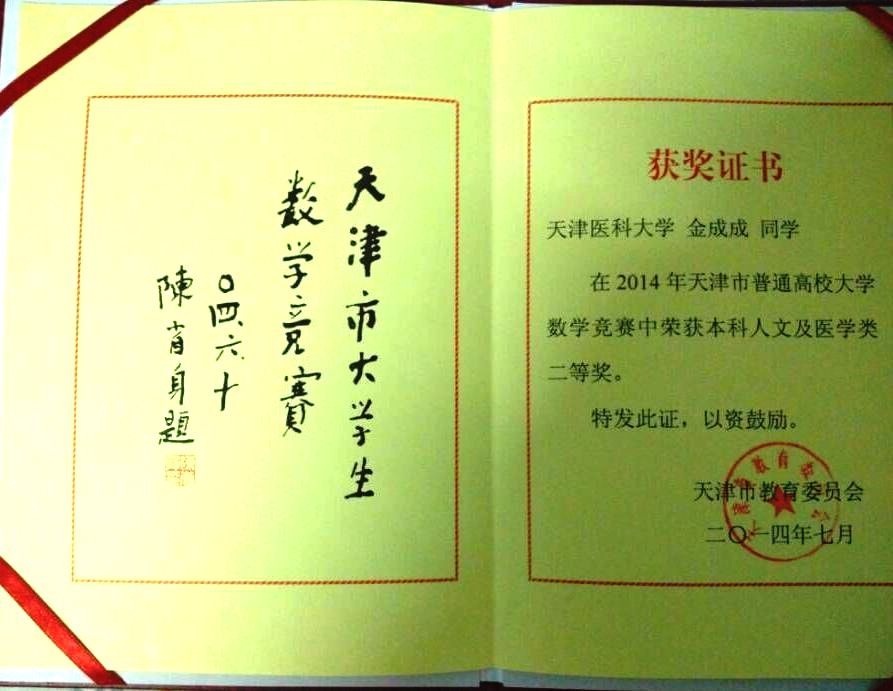 天津市大学生
数学竞賽
〇四六十
陳省身題
获奖证书
天津医科大学 金成成 同学
在2014年天津市普通高校大学
数学竞赛中荣获本科人文及医学类
二等奖。
特发此证，以资鼓励。
天津市教育委员会
二〇一四年七月